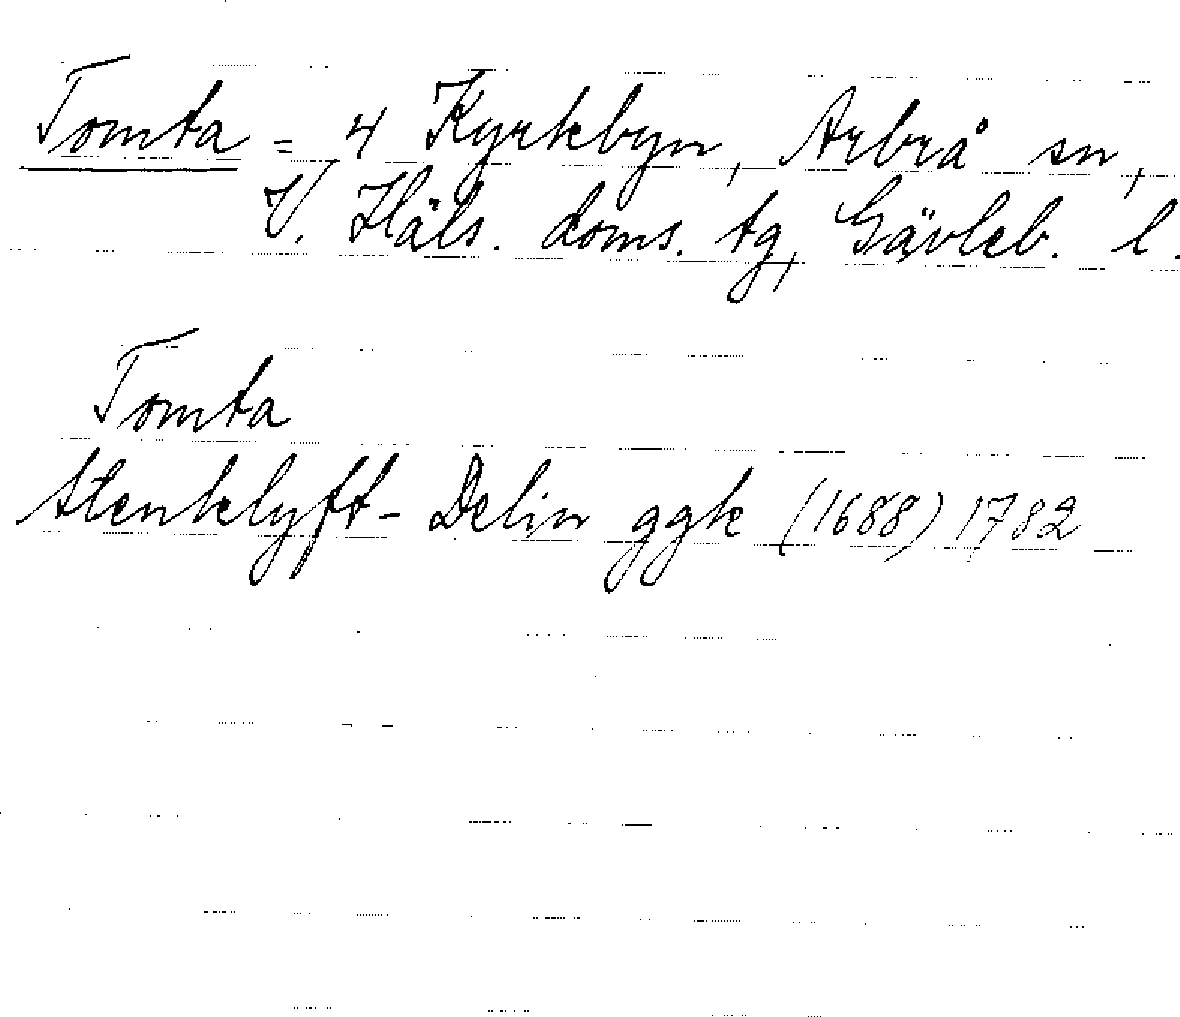 Tomta = 4 Kyrkbyn, Arbrå sn,
V. Häls. doms. tg, Gävleb. l.
Tomta
Stenklyft - Delin ggk (1688) 1782